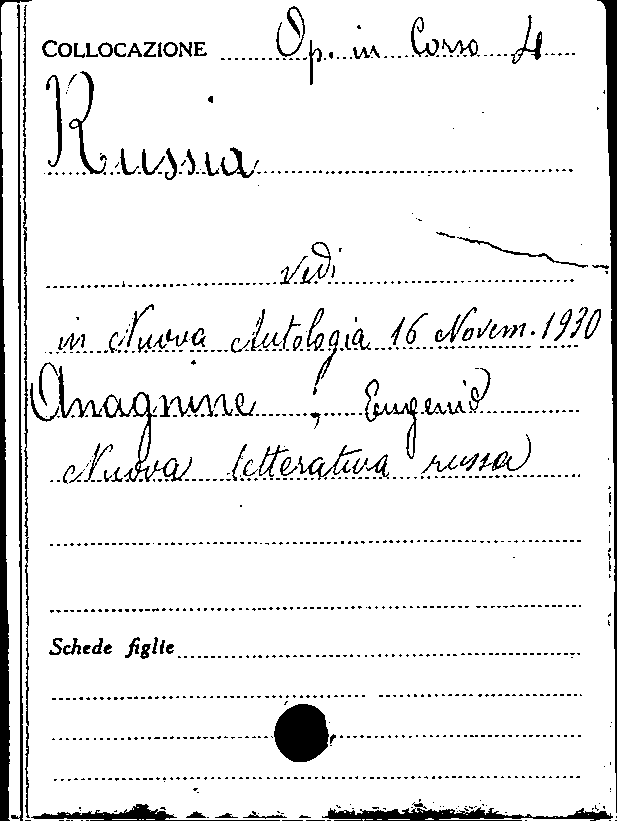 COLLOCAZIONE Op. in Corso 4
Russia
vedi
in Nuova Antologia 16 Novem. 1930
Anagnine ; Eugenio
Nuova letteratura russa
Schede figlie